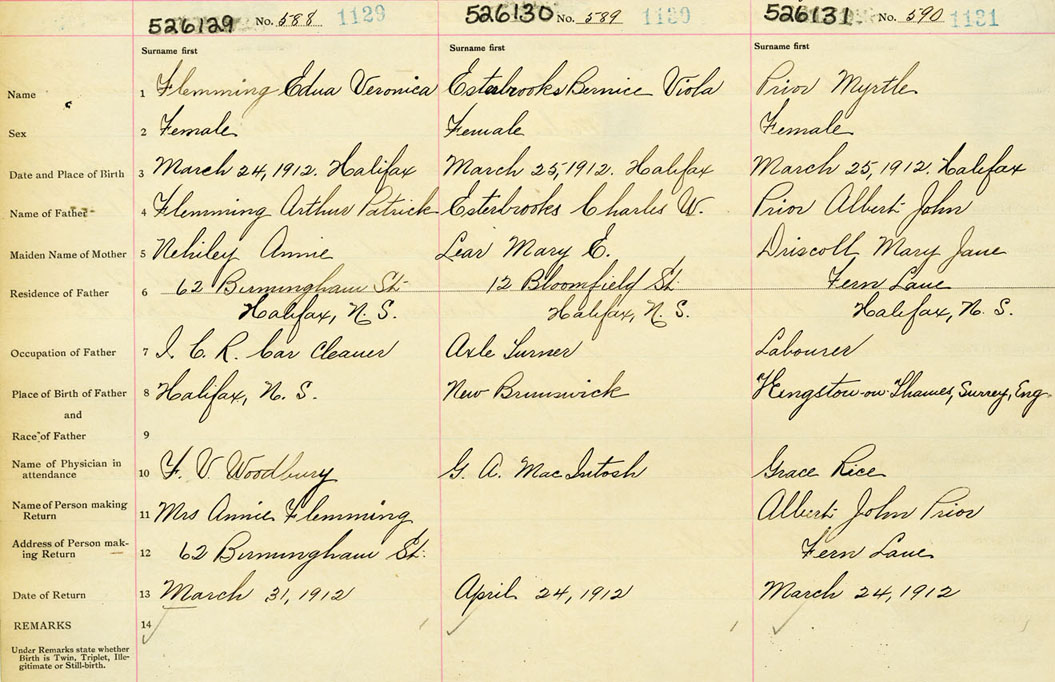 526129 No. 588 1129 526130 No. 589 1130 526131 No. 590 1131
Surname first Surname first Surname first
Name 1 Flemming Edna Veronica Esterbrooks Bernice Viola Prior Myrtle
Sex 2 Female Female Female
Date and Place of Birth 3 March 24, 1912. Halifax March 25, 1912. Halifax March 25, 1912. Halifax
Name of Father 4 Flemming Arthur Patrick Esterbrooks Charles W. Prior Albert John
Maiden Name of Mother 5 Nehiley Annie Lear Mary E. Driscoll Mary Jane
Residence of Father 6 62 Birmingham St. 12 Bloomfield St. Fern Lane
Halifax, N. S. Halifax, N. S. Halifax, N. S.
Occupation of Father 7 I. C. R. Car Cleaner Axle Turner Labourer
Place of Birth of Father 8 Halifax, N. S. New Brunswick Kingston-on-Thames, Surrey, Eng.
and
Race of Father 9
Name of Physician in
attendance 10 F. V. Woodbury G. A. MacIntosh Grace Rice
Name of Person making
Return 11 Mrs Annie Flemming Albert John Prior
Address of Person mak-
ing Return 12 62 Birmingham St. Fern Lane
Date of Return 13 March 31, 1912 April 24, 1912 March 24, 1912
REMARKS 14
Under Remarks state whether
Birth is Twin, Triplet, Ille-
gitimate or Still-birth.